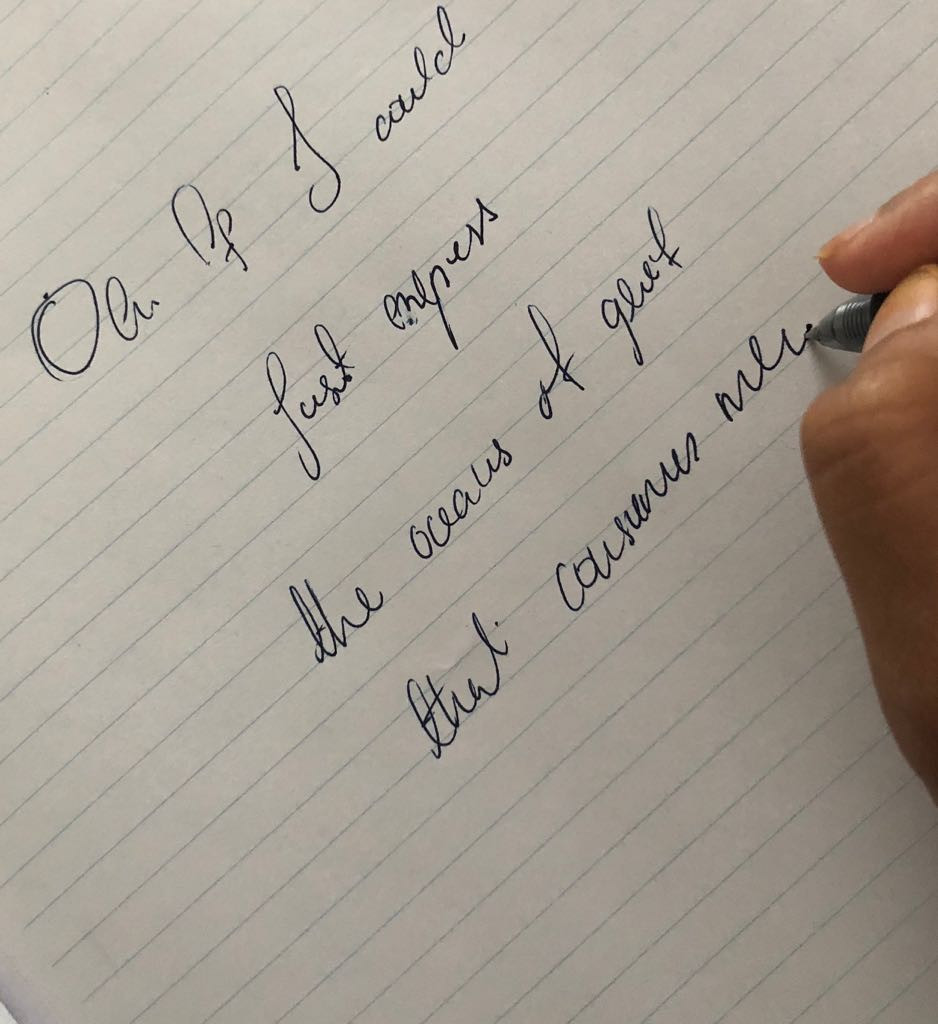 Oh If I could
just express
the oceans of grief
that consumes me..